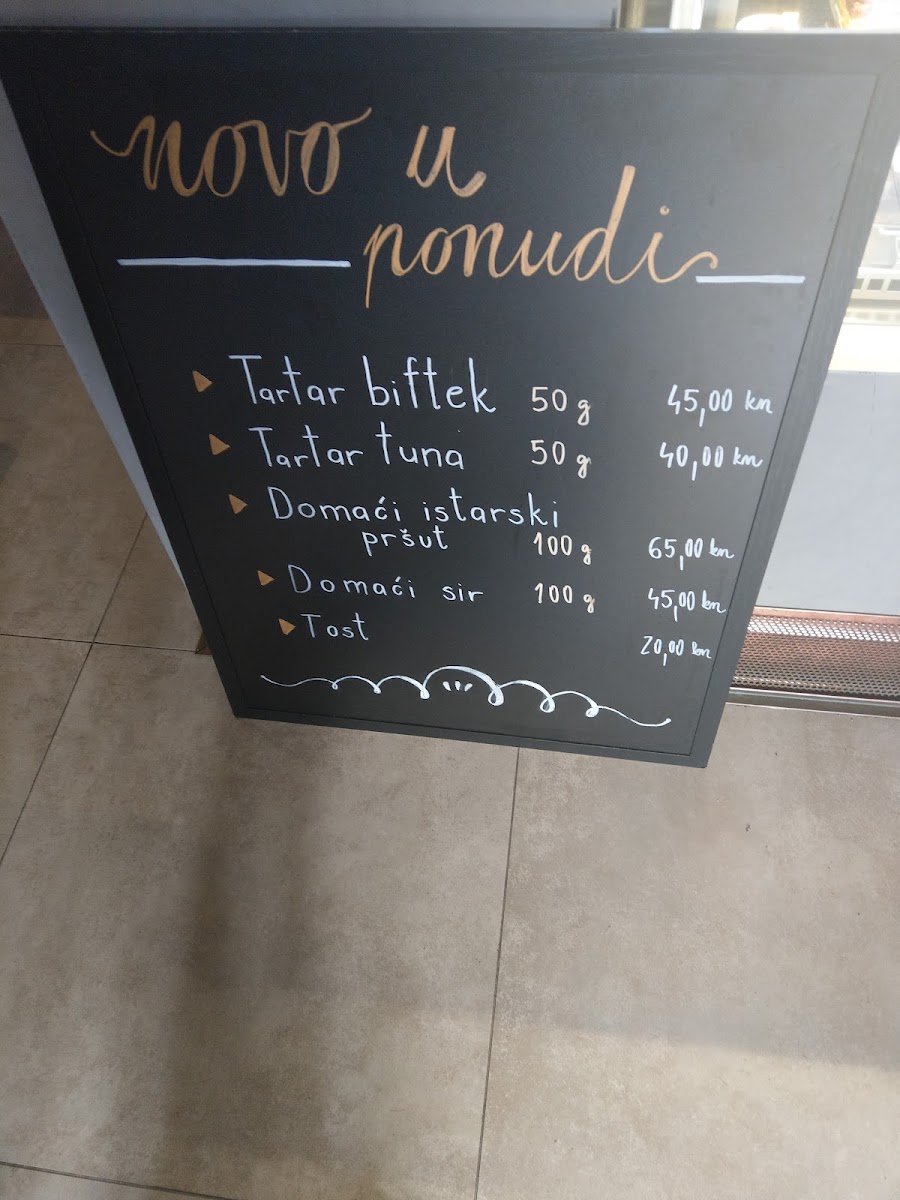 novo u
ponudi
Tartar biftek 50 g 45,00 kn
Tartar tuna 50 g 40,00 kn
Domaći istarski
pršut 100 g 65,00 kn
Domaći sir 100 g 45,00 kn
Tost 20,00 kn